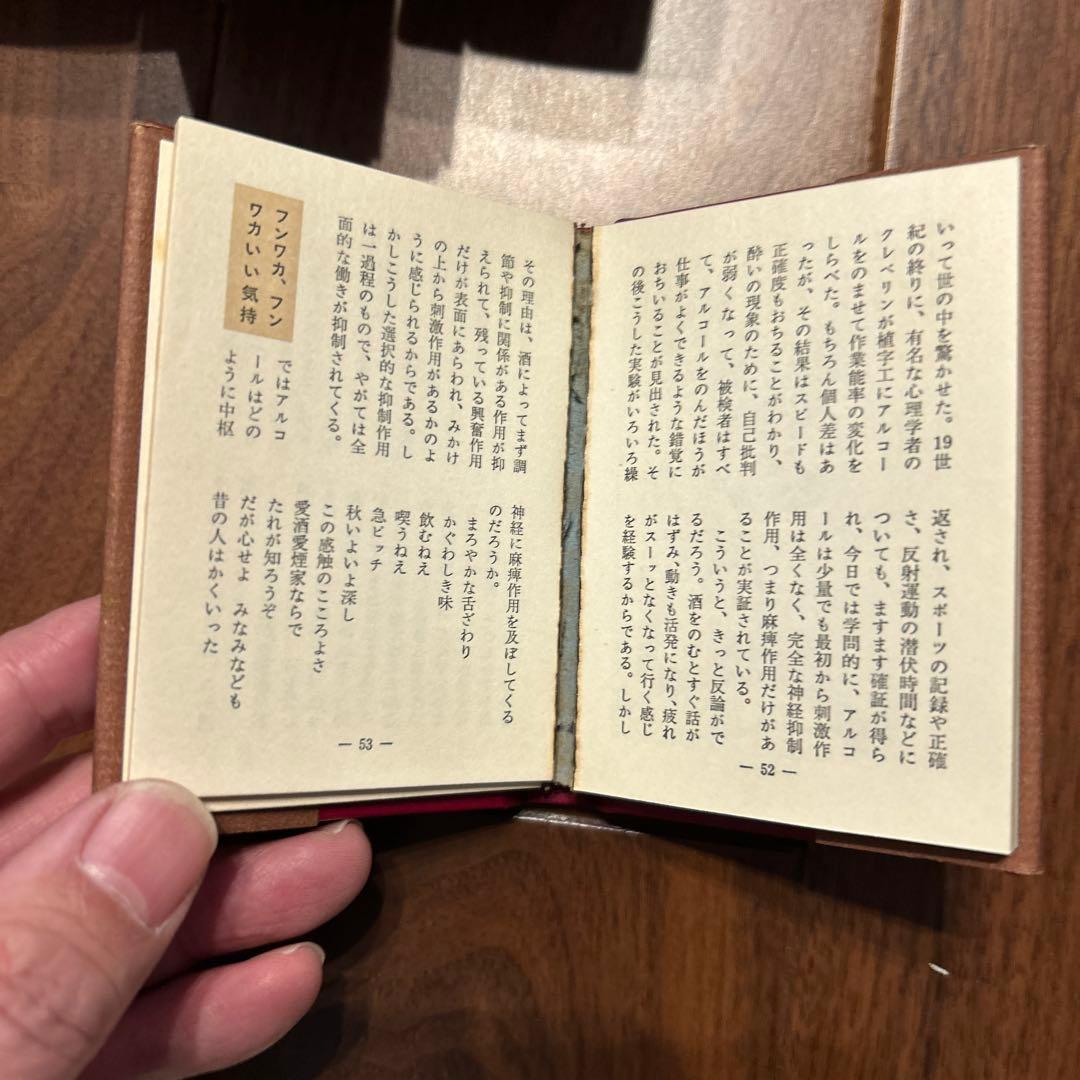 いって世の中を驚かせた。19世
紀の終りに、有名な心理学者の
クレペリンが植字工にアルコー
ルをのませて作業能率の変化を
しらべた。もちろん個人差はあ
ったが、その結果はスピードも
正確度もおちることがわかり、
酔いの現象のために、自己批判
が弱くなって、被検者はすべ
て、アルコールをのんだほうが
仕事がよくできるような錯覚に
おちいることが見出された。そ
の後こうした実験がいろいろ繰
返され、スポーツの記録や正確
さ、反射運動の潜伏時間などに
ついても、ますます確証が得ら
れ、今日では学問的に、アルコ
ールは少量でも最初から刺激作
用は全くなく、完全な神経抑制
作用、つまり麻痺作用だけがあ
ることが実証されている。
こういうと、きっと反論がで
るだろう。酒をのむとすぐ話が
はずみ、動きも活発になり、疲れ
がスーッとなくなって行く感じ
を経験するからである。しかし
— 52 —
その理由は、酒によってまず調
節や抑制に関係がある作用が抑
えられて、残っている興奮作用
だけが表面にあらわれ、みかけ
の上から刺激作用があるかのよ
うに感じられるからである。し
かしこうした選択的な抑制作用
は一過程のもので、やがては全
面的な働きが抑制されてくる。
フンワカ、フン
ワカいい気持
ではアルコ
ールはどの
ように中枢
神経に麻痺作用を及ぼしてくる
のだろうか。
まろやかな舌ざわり
かぐわしき味
飲むねえ
喫うねえ
急ピッチ
秋いよいよ深し
この感触のこころよさ
愛酒愛煙家ならで
たれが知ろうぞ
だが心せよ みなみなども
昔の人はかくいった
— 53 —